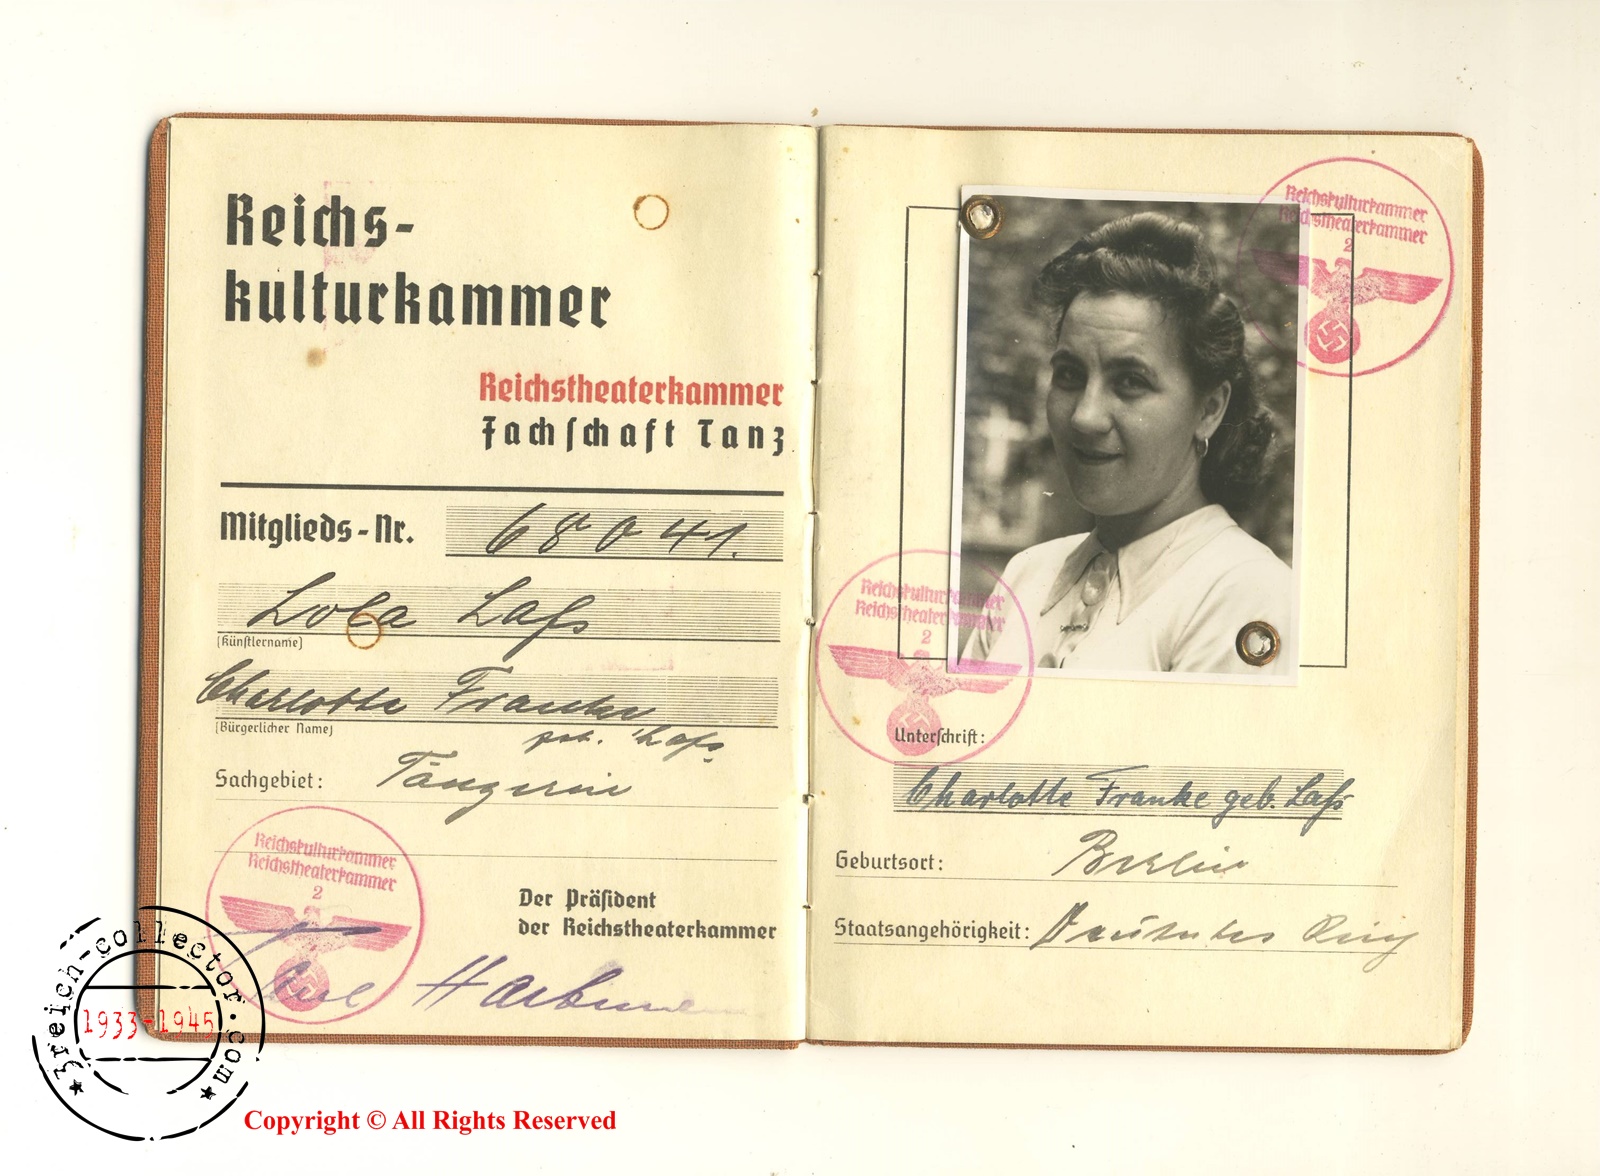 Reichs-
kulturkammer
Reichstheaterkammer
Fachschaft Tanz
Mitglieds-Nr. 68041.
Lola Laſs
(Künſtlername)
Charlotte Franke
(Bürgerlicher Name)
geb. Laſs.
Sachgebiet: Tänzerin
Reichskulturkammer
Reichstheaterkammer
2
Der Präſident
der Reichstheaterkammer
Reichskulturkammer
Reichstheaterkammer
2
Reichskulturkammer
Reichstheaterkammer
2
Unterſchrift:
Charlotte Franke geb. Laſs
Geburtsort: Berlin
Staatsangehörigkeit: Deutsches
3reich-collector.com
1933-1945
Copyright © All Rights Reserved